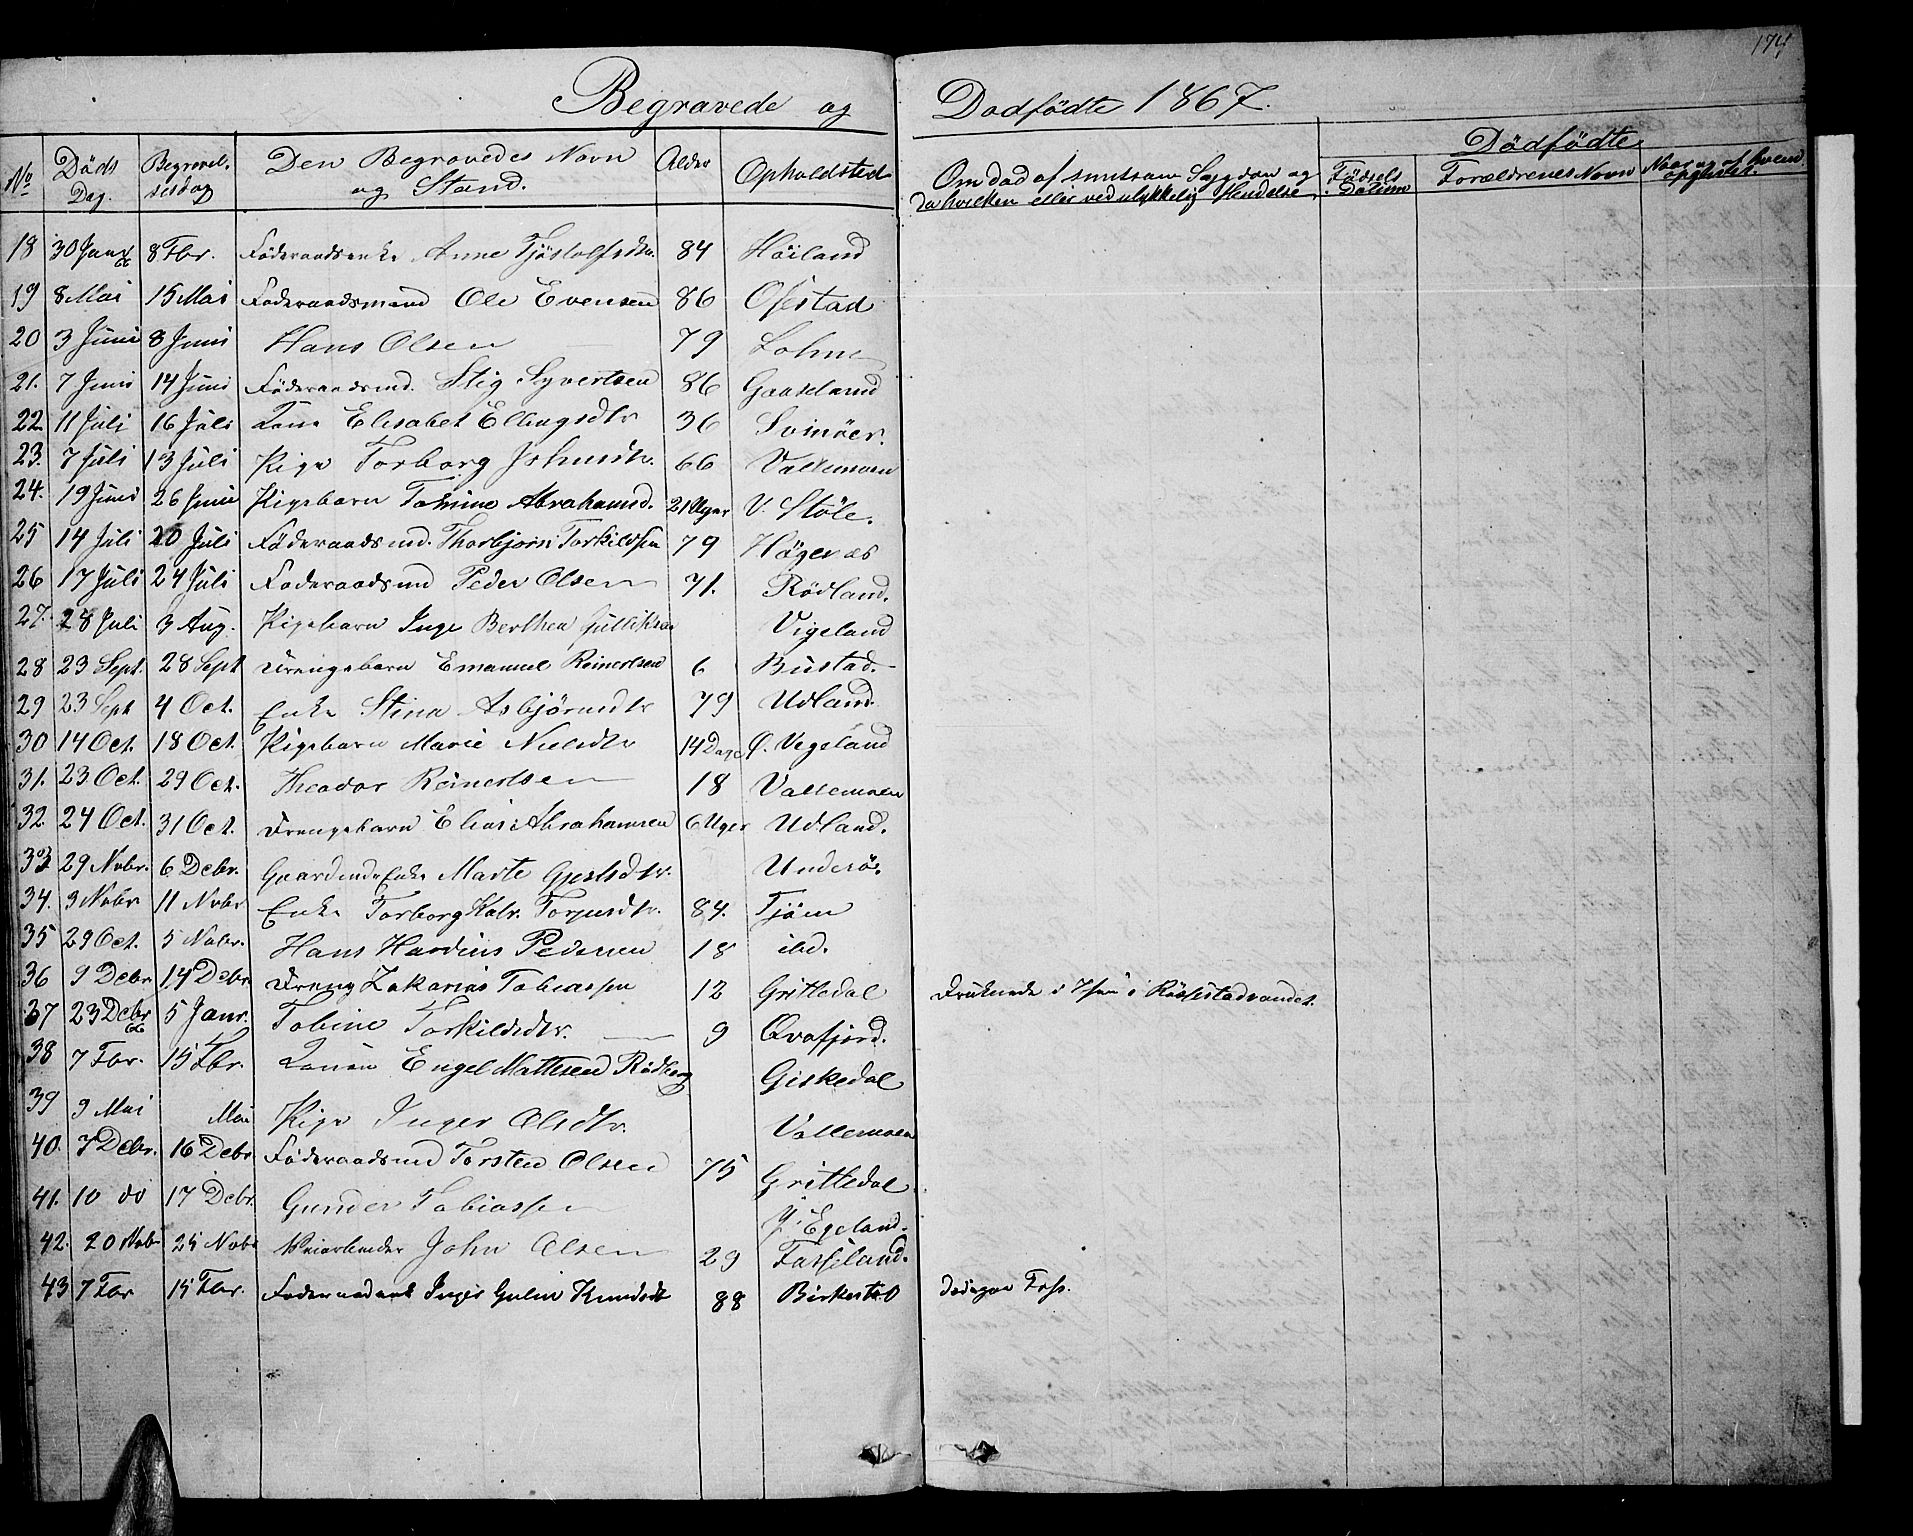 174
Begravede og Dødfødte 1867.
No Döds Dag. Begravel- sesdag Den Begravedes Navn og Stand. Alder Opholdsted Om død af smitsom Sygdom og da hvilken eller ved ulykkelig Hændelse. Dødfödte. Födsels Datum Forældrenes Navn Naar og af hvem
18 30 Janr 8 Fbr. Föderaadsenke Anne Tjöstolfsdtr. 84 Höiland
19 8 Mai 15 Mai Föderaadsmand Ole Evensen 86 Ofestad
20 3 Juni 8 Juni Hans Olsen 79 Lohne
21. 7 Juni 14 Juni Föderaadsmd. Stig Syvertsen 86 Gaaseland
22. 11 Juli 16 Juli Kone Elisabet Ellingsdtr 36 Svinöer.
23. 7 Juli 13 Juli Pige Torborg 66 Vallemoen
24. 19 Juni 26 Juni Pigebarn Tomine Abrahamsd. 21 Uger V. Støle.
25 14 Juli 20 Juli Föderaadsmd. Thorbjörn Torkildsen 79 Högenæs
26 17 Juli 24 Juli Föderaadsmd Peder Olsen 71. Rödland.
27. 28 Juli 3 Aug. Pigebarn Inge Berthea Vigeland
28 23 Sept. 28 Sept Drengebarn Emanuel Reinertsen 6 Bustad.
29 23 Sept 4 Oct. Enke Stina Asbjörnsdtr 79 Udland.
30 14 Oct. 18 Oct. Pigebarn Marie Nielsdtr 14 Dage Ø. Vegeland
31. 23 Oct. 29 Oct. Theodor Reinertsen 18 Vallemoen
32. 24 Oct. 31 Oct. Drengebarn Elias Abrahamsen 6 Uger Udland.
33 29 Nobr. 6 Debr. Gaardmds Enke Marte Underö.
34. 3 Nobr 11 Nobr Enke Torborg Katr. Torjusdtr. 84. Tjöm
35 29 Oct. 5 Nobr. Hans Hardius Pedersen 18 ibd.
36 9 Debr 14 Debr Dreng Zakarias Tobiassen 12 Grittedal Druknede i Isen i
37 23 Debr 5 Janr. Tobine Torkildsdtr. 9 Qvafjord.
38 7 Fbr. 15 Fbr. Konen Engel Mattesen Rödberg Giskedal
39 9 Mai Mai Pige Inger Olsdtr. Vallemoen
40. 7 Debr. 16 Debr Föderaadsmd Torsten Olsen 75 Grittedal
41. 10 do 17 Debr. Gunder Tobiassen Y. Egeland.
42. 20 Nobr 25 Nobr Veiarbeider John Olsen 29 Fasseland.
43 7 Fbr 15 Fbr. Inger Knudsdt 88 Birkestø